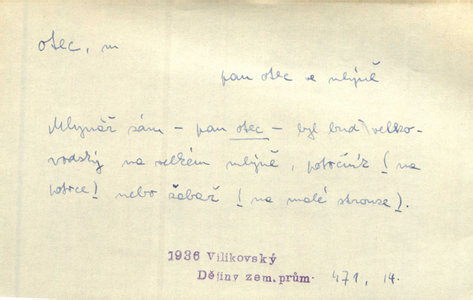 otec, m
pan otec ve mlýně
Mlynář sám – pan otec – byl buď velko-
vodský na velkém mlýně, potočník (na
potoce) nebo žabař (na malé strouze).
1936 Vilikovský
Dějiny zem.prům. 471, 14.